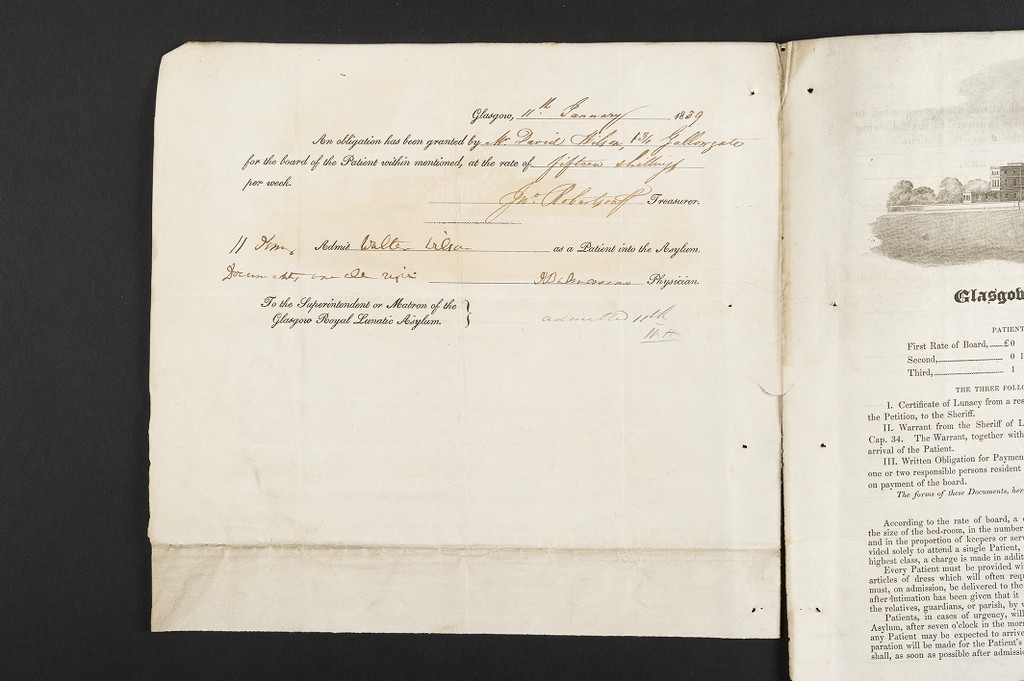 Glasgow, 11th January 1839
An obligation has been granted by Mr. David Wilson, 134 Gallowgate
for the board of the Patient within mentioned, at the rate of fifteen shillings
per week.
Jno. Robertson Treasurer.
11 Admit Walter Wilson as a Patient into the Asylum.
Documents Physician.
To the Superintendent or Matron of the
Glasgow Royal Lunatic Asylum. }
admitted 11th
Glasgow
PATIENT
First Rate of Board, £0
Second, 0 1
Third, 1
THE THREE FOLLO
I. Certificate of Lunacy from a res
the Petition, to the Sheriff.
II. Warrant from the Sheriff of L
Cap. 34. The Warrant, together with
arrival of the Patient.
III. Written Obligation for Paymen
one or two responsible persons resident
on payment of the board.
The forms of these Documents, her
According to the rate of board, a
the size of the bed-room, in the number
and in the proportion of keepers or serv
vided solely to attend a single Patient,
highest class, a charge is made in addit
Every Patient must be provided wi
articles of dress which will often requ
must, on admission, be delivered to the
after intimation has been given that it
the relatives, guardians, or parish, by
Patients, in cases of urgency, will
Asylum, after seven o'clock in the morn
any Patient may be expected to arrive
paration will be made for the Patient's
shall, as soon as possible after admissio